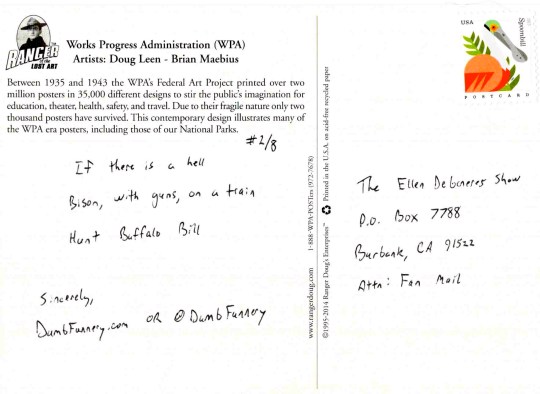 RANGER
of the
LOST ART
Works Progress Administration (WPA)
Artists: Doug Leen - Brian Maebius
Between 1935 and 1943 the WPA's Federal Art Project printed over two
million posters in 35,000 different designs to stir the public's imagination for
education, theater, health, safety, and travel. Due to their fragile nature only two
thousand posters have survived. This contemporary design illustrates many of
the WPA era posters, including those of our National Parks.
#2/8
If there is a hell
Bison, with guns, on a train
Hunt Buffalo Bill
Sincerely,
DumbFunnery.com OR @DumbFunnery
www.rangerdoug.com 1-888-WPA-POSTers (972-7678)
©1995-2014 Ranger Doug's Enterprises™ Printed in the U.S.A. on acid-free recycled paper
USA
Spoonbill
POSTCARD
The Ellen DeGeneres Show
P.O. Box 7788
Burbank, CA 91522
Attn: Fan Mail